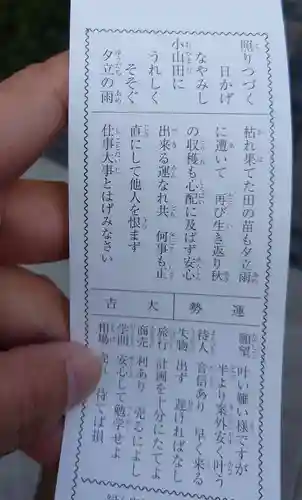 照りつづく
日かげ
なやみし
小山田に
うれしく
そそぐ
夕立の雨
枯れ果てた田の苗も夕立雨
に遭いて 再び生き返り秋
の収穫も心配に及ばず安心
出来る運なれ共 何事も正
直にして他人を恨まず
仕事大事とはげみなさい
運勢
大吉
願望 叶い難い様ですが
半より案外安く叶う
待人 音信あり 早く来る
失物 出ず 遅ければなし
旅行 計画を十分にたてよ
商売 利あり 売るによし
学問 安心して勉学せよ
相場 待てば損